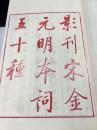 影刊宋金
元明本词
五十種